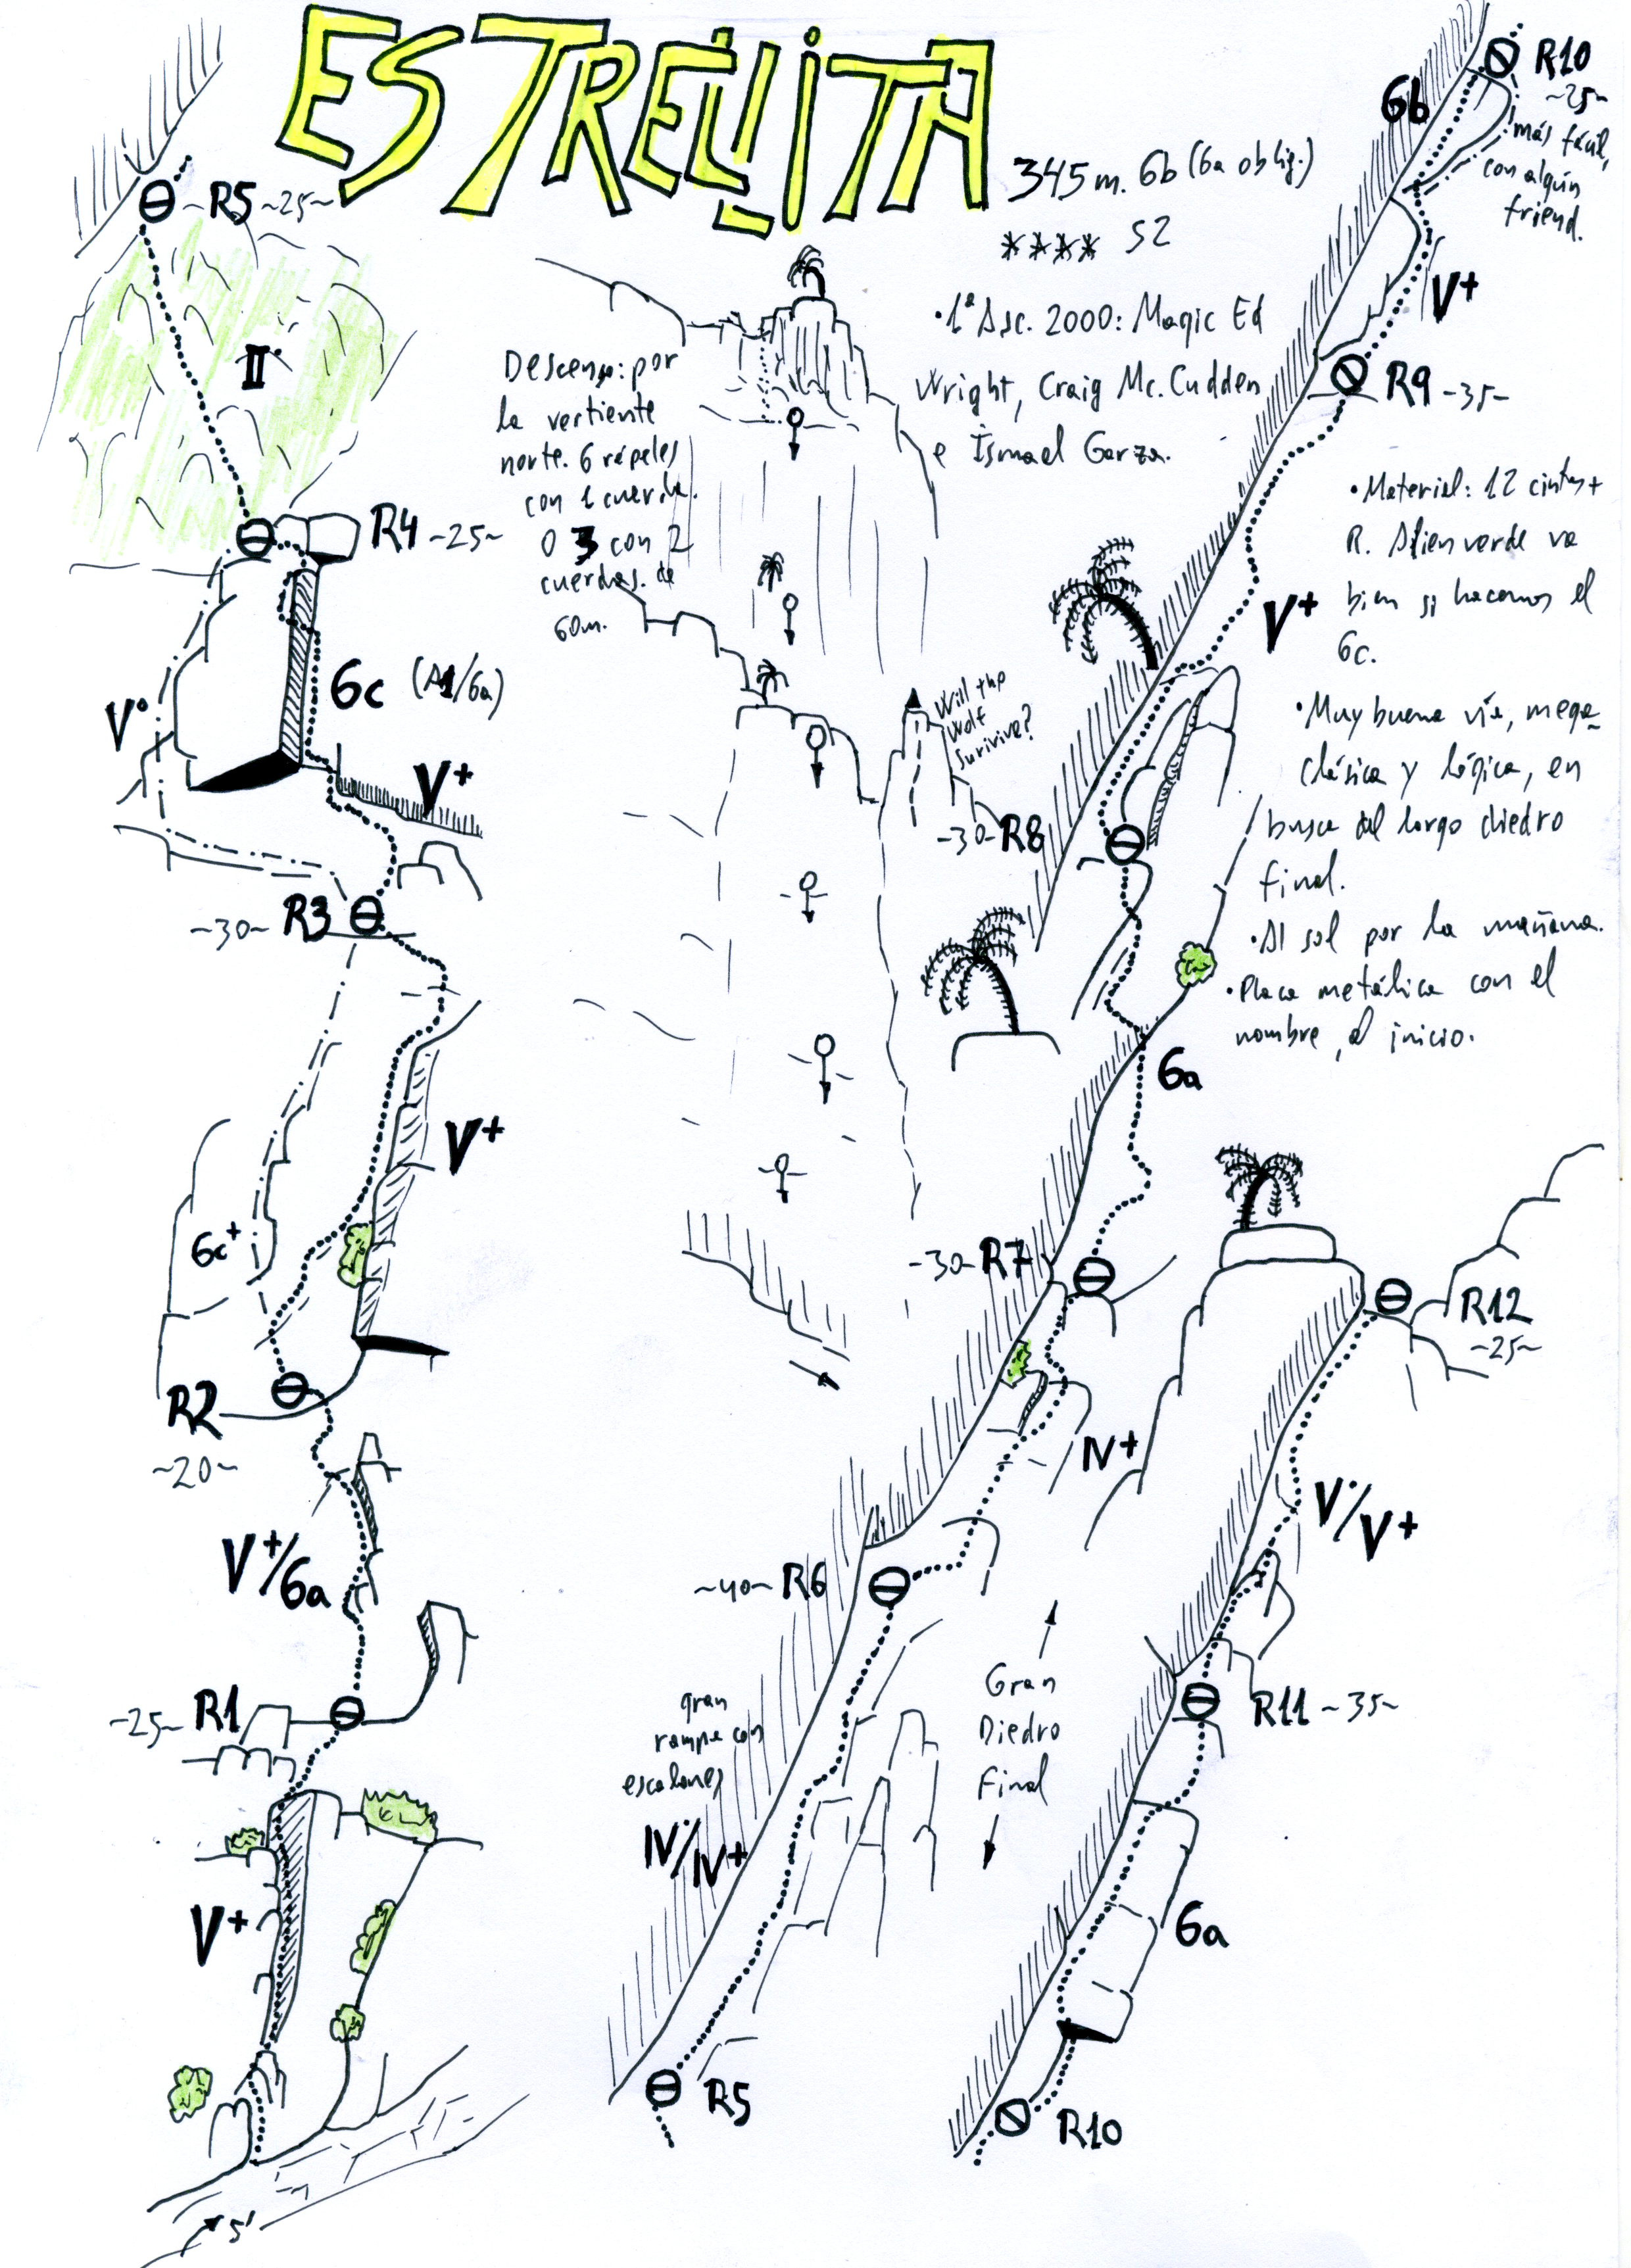 ESTRELLITA
345m. 6b (6a oblig.)
**** S2
• 1ª Asc. 2000: Magic Ed
Wright, Craig Mc. Cudden
e Ismael Garza.
Descenso: por
la vertiente
norte. 6 rápeles
con 1 cuerda.
O 3 con 2
cuerdas. de
60m.
Will the
Wolf
Survive?
• Material: 12 cintas +
R. Alien verde va
bien si hacemos el
6c.
• Muy buena vía, mega-
clásica y lógica, en
busca del largo diedro
final.
• Al sol por la mañana.
• Placa metálica con el
nombre, al inicio.
R5 ~25~
II
R4 ~25~
6c (A1/6a)
Vº
V+
~30~ R3
V+
6c+
R2
~20~
V+/6a
~25~ R1
V+
5'
R10
~25~
6b
más fácil,
con algún
friend.
V+
R9 ~35~
V+
-30- R8
6a
-30- R7
IV+
~40~ R6
gran
rampa con
escalones
IV/IV+
R5
Gran
Diedro
Final
R12
~25~
V/V+
R11 ~35~
6a
R10